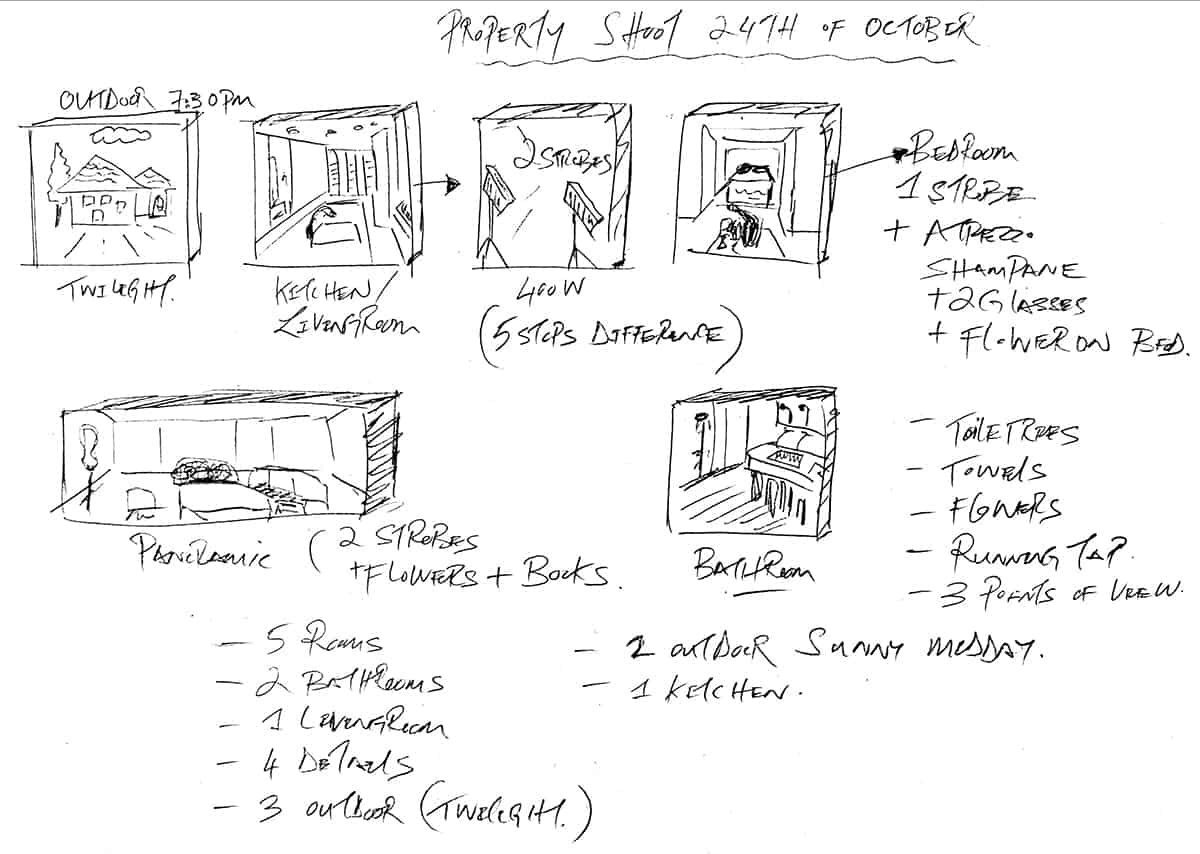 PROPERTY SHOOT 24TH OF OCTOBER
OUTDOOR 7:30PM
TWILIGHT.
KITCHEN/
LIVINGROOM
2 STROBES
400W
(5 STOPS DIFFERENCE)
BEDROOM
1 STROBE
+ ATREZZO.
SHAMPANE
+2 GLASSES
+ FLOWER ON BED.
PANORAMIC
(2 STROBES
+FLOWERS + BOOKS.
BATHROOM
- TOILETRIES
- TOWELS
- FLOWERS
- RUNNING TAP.
- 3 POINTS OF VIEW.
- 5 ROOMS
- 2 BATHROOMS
- 1 LIVINGROOM
- 4 DETAILS
- 3 OUTDOOR (TWILIGHT.)
- 2 OUTDOOR SUNNY MIDDAY.
- 1 KITCHEN.